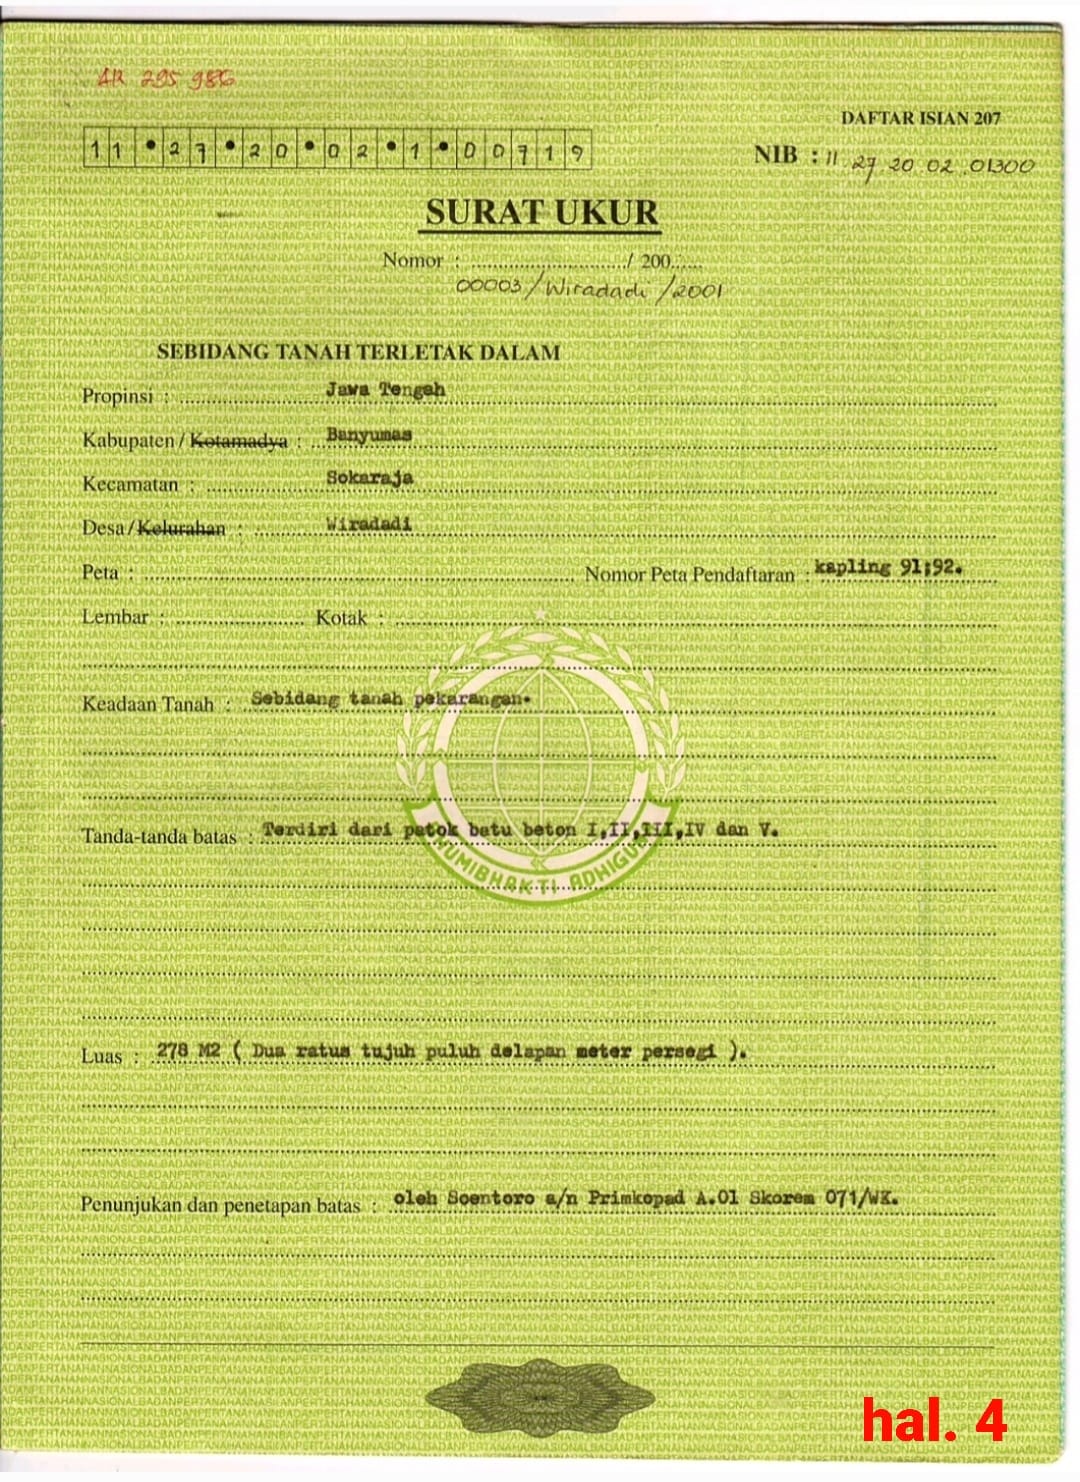 AR 295 986
DAFTAR ISIAN 207
11 • 27 • 20 • 02 • 1 • 00719
NIB : 11.27.20.02.01300
SURAT UKUR
Nomor : ............................/ 200......
00003/Wiradadi/2001
SEBIDANG TANAH TERLETAK DALAM
Propinsi : Jawa Tengah
Kabupaten / Kotamadya : Banyumas
Kecamatan : Sokaraja
Desa / Kelurahan : Wiradadi
Peta : Nomor Peta Pendaftaran : kapling 91;92.
Lembar : Kotak :
Keadaan Tanah : Sebidang tanah pekarangan.
Tanda-tanda batas : Terdiri dari patok batu beton I,II,III,IV dan V.
BHUMIBHAKTI ADHIGUNA
Luas : 278 M2 ( Dua ratus tujuh puluh delapan meter persegi ).
Penunjukan dan penetapan batas : oleh Soentoro a/n Primkopad A.01 Skorem 071/WK.
hal. 4